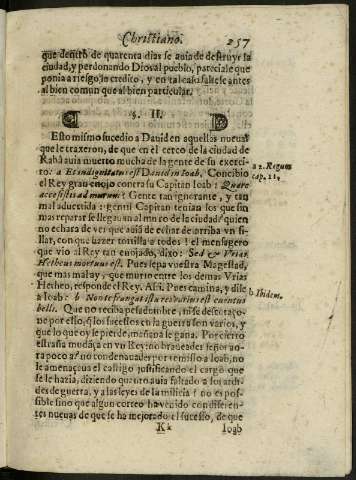 Christiano. 257
que dentro de quarenta dias se auia de destruyr la
ciudad, y perdonando Dios al pueblo, pareciale que
ponia a riesgo lo credito, y en tal caso saltele antes
al bien comun que al bien particular.
§. II.
Esto mismo sucedio a Dauid en aquellas nueuas
que le traxeron, de que en el cerco de la ciudad de
Rabà auia muerto mucha de la gente de su exerci-
to: a Et indignatus est Dauid in Ioab. Concibio
el Rey gran enojo contra su Capitan Ioab: Quare
accesistis ad murum? Gente tan ignorante, y tan
mal aduertida: gentil Capitan teniais los que sin
mas reparar se llegan al muro de la ciudad? quien
no echara de ver que auiã de echar de arriba vn si-
llar, con que hazer tortilla a todos? el mensagero
que vio al Rey tan enojado, dixo: Sed & Vrias
Hetheus mortuus est. Pues sepa vuestra Magestad,
que mas mal ay, que murio entre los demas Vrias
Hetheo, responde el Rey. Assi. Pues camina, y dile
a Ioab: b Non te frangat ista res varius est euentus
belli. Que no reciba pesadumbre, ni se descoraço-
ne por esso, q̃ los sucessos en la guerra son varios, y
que lo que oy se pierde, mañana se gana. Por cierto
estraña mudãça en vn Rey: no braueades señor aora
poco ha? no condenauades por remisso a Ioab, no
le amenaçaua el castigo justificando el cargo que
se le hazia, diziendo que no auia faltado a los ardi-
des de guerra, y a las leyes de la milicia? no es pos-
sible sino que algun correo ha venido con diferen-
tes nueuas de que se ha mejorado el sucesso, de que
Kk Ioab
a 2. Regum
cap. 11.
b Ibidem.